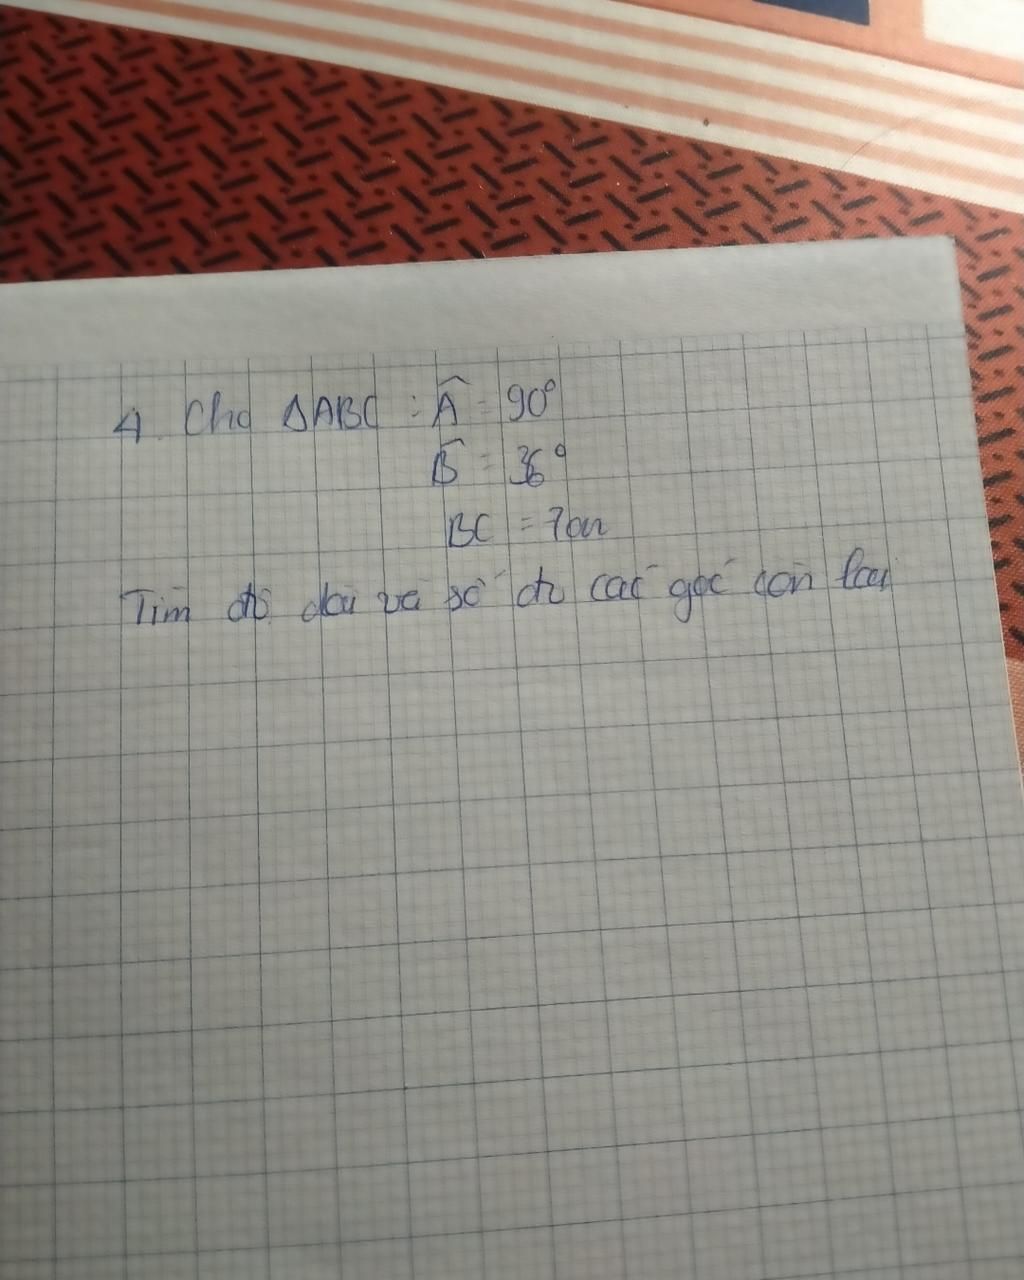 4. Cho ΔABC : Â = 90°
B̂ = 36°
BC = 7cm
Tìm độ dài và số đo các góc còn lại